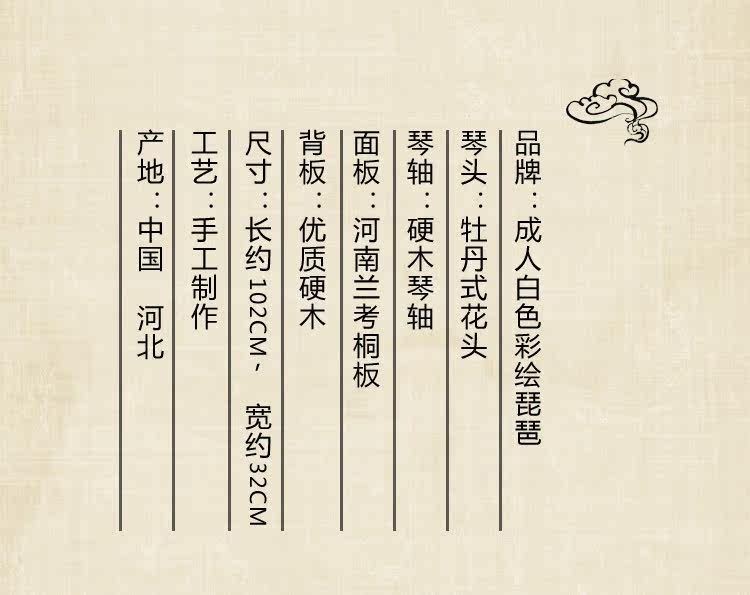 品牌：成人白色彩绘琵琶
琴头：牡丹式花头
琴轴：硬木琴轴
面板：河南兰考桐板
背板：优质硬木
尺寸：长约102CM, 宽约32CM
工艺：手工制作
产地：中国 河北